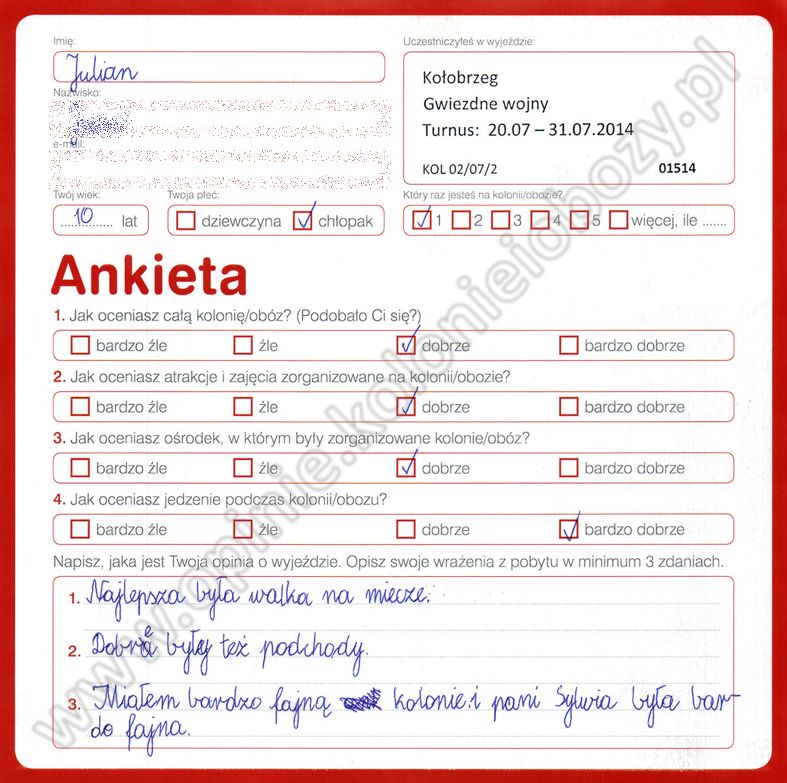 Imię:
Julian
Nazwisko:
e-mail:
Uczestniczyłeś w wyjeździe:
Kołobrzeg
Gwiezdne wojny
Turnus: 20.07 – 31.07.2014
KOL 02/07/2 01514
Twój wiek: Twoja płeć: Który raz jesteś na kolonii/obozie?
10 lat dziewczyna chłopak 1 2 3 4 5 więcej, ile .......
Ankieta
1. Jak oceniasz całą kolonię/obóz? (Podobało Ci się?)
bardzo źle źle dobrze bardzo dobrze
2. Jak oceniasz atrakcje i zajęcia zorganizowane na kolonii/obozie?
bardzo źle źle dobrze bardzo dobrze
3. Jak oceniasz ośrodek, w którym były zorganizowane kolonie/obóz?
bardzo źle źle dobrze bardzo dobrze
4. Jak oceniasz jedzenie podczas kolonii/obozu?
bardzo źle źle dobrze bardzo dobrze
Napisz, jaka jest Twoja opinia o wyjeździe. Opisz swoje wrażenia z pobytu w minimum 3 zdaniach.
1. Najlepsza była walka na miecze.
2. Dobre były też podchody.
3. Miałem bardzo fajną kolonie i pani Sylwia była bar-
do fajna.
www.opinie.kolonieiobozy.pl